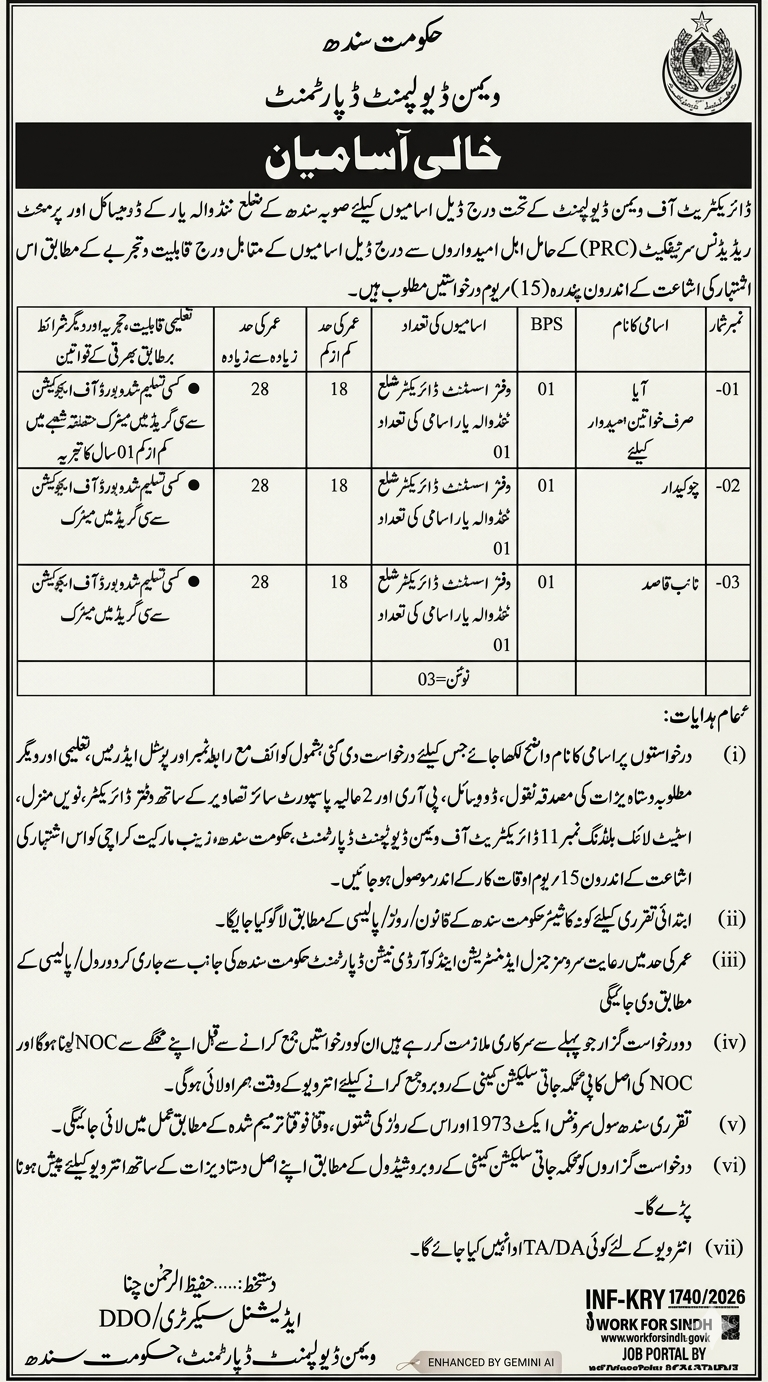 حکومت سندھ
ویمن ڈیولپمنٹ ڈپارٹمنٹ
خالی آسامیان
ڈائریکٹریٹ آف ویمن ڈیولپمنٹ کے تحت درج ذیل اسامیوں کیلئے صوبہ سندھ کے ضلع ٹنڈوالہ یار کے ڈومیسائل اور پرمننٹ
ریذیڈنس سرٹیفکیٹ (PRC) کے حامل اہل امیدواروں سے درج ذیل اسامیوں کے مقابل درج قابلیت وتجربے کے مطابق اس
اشتہار کی اشاعت کے اندرون پندرہ (15) ریوم درخواستیں مطلوب ہیں۔
نمبر شمار
اسامی کا نام
BPS
اسامیوں کی تعداد
عمر کی حد
کم از کم
عمر کی حد
زیادہ سے زیادہ
تعلیمی قابلیت، تجربہ اور دیگر شرائط
برطابق بھرتی کے قوانین
-01
آیا
صرف خواتین امیدوار
کیلئے
01
دفتر اسسٹنٹ ڈائریکٹر ضلع
ٹنڈوالہ یار اسامی کی تعداد
01
18
28
● کسی تسلیم شدہ بورڈ آف ایجوکیشن
سے سی گریڈ میں میٹرک متعلقہ شعبے میں
کم از کم 01 سال کا تجربہ
-02
چوکیدار
01
دفتر اسسٹنٹ ڈائریکٹر ضلع
ٹنڈوالہ یار اسامی کی تعداد
01
18
28
● کسی تسلیم شدہ بورڈ آف ایجوکیشن
سے سی گریڈ میں میٹرک
-03
نائب قاصد
01
دفتر اسسٹنٹ ڈائریکٹر ضلع
ٹنڈوالہ یار اسامی کی تعداد
01
18
28
● کسی تسلیم شدہ بورڈ آف ایجوکیشن
سے سی گریڈ میں میٹرک
ٹوٹل=03
عام ہدایات:
(i) درخواستوں پر اسامی کا نام واضح لکھا جائے جس کیلئے درخواست دی گئی بشمول کوائف مع رابطہ نمبر اور پوسٹل ایڈریس، تعلیمی اور دیگر
مطلوبہ دستاویزات کی مصدقہ نقول، ڈومیسائل، پی آر سی اور 2 حالیہ پاسپورٹ سائز تصاویر کے ساتھ دفتر ڈائریکٹر، نویں منزل،
اسٹیٹ لائف بلڈنگ نمبر 11 ڈائریکٹریٹ آف ویمن ڈیولپمنٹ ڈپارٹمنٹ، حکومت سندھ، زینب مارکیٹ کراچی کو اس اشتہار کی
اشاعت کے اندرون 15 ریوم اوقات کار کے اندر موصول ہو جائیں۔
(ii) ابتدائی تقرری کیلئے کوٹہ کا شیئر حکومت سندھ کے قانون/رولز/پالیسی کے مطابق لاگو کیا جایگا۔
(iii) عمر کی حد میں رعایت سروسز جنرل ایڈمنسٹریشن اینڈ کوآرڈی نیشن ڈپارٹمنٹ حکومت سندھ کی جانب سے جاری کردہ رول/پالیسی کے
مطابق دی جائیگی
(iv) وہ درخواست گزار جو پہلے سے سرکاری ملازمت کر رہے ہیں ان کو درخواستیں جمع کرانے سے قبل اپنے محکمے سے NOC لینا ہوگا اور
NOC کی اصل کاپی محکمہ جاتی سلیکشن کمیٹی کے روبرو جمع کرانے کیلئے انٹرویو کے وقت ہمراہ لانی ہوگی۔
(v) تقرری سندھ سول سرونٹس ایکٹ 1973 اور اس کے رولز کی شقوں، وقتاً فوقتاً ترمیم شدہ کے مطابق عمل میں لائی جائیگی۔
(vi) درخواست گزاروں کو محکمہ جاتی سلیکشن کمیٹی کے روبرو شیڈول کے مطابق اپنے اصل دستاویزات کے ساتھ انٹرویو کیلئے پیش ہونا
پڑے گا۔
(vii) انٹرویو کے لئے کوئی TA/DA ادا نہیں کیا جائے گا۔
دستخط:.....حفیظ الرحمٰن چنا
ایڈیشنل سیکرٹری/DDO
ویمن ڈیولپمنٹ ڈپارٹمنٹ، حکومت سندھ
INF-KRY 1740/2026
WORK FOR SINDH
www.workforsindh.govk
JOB PORTAL BY
ENHANCED BY GEMINI AI